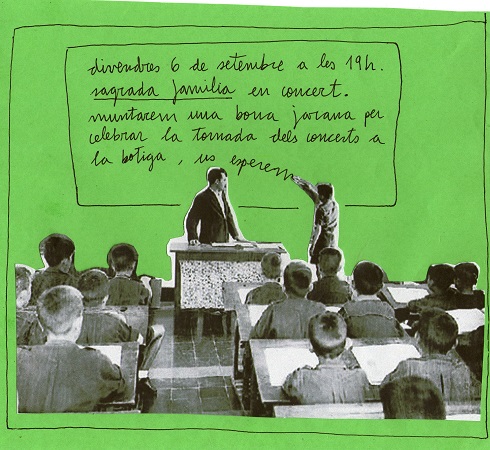 divendres 6 de setembre a les 19h.
sagrada familia en concert.
muntarem una bona jarana per
celebrar la tornada dels concerts a
la botiga, us esperem